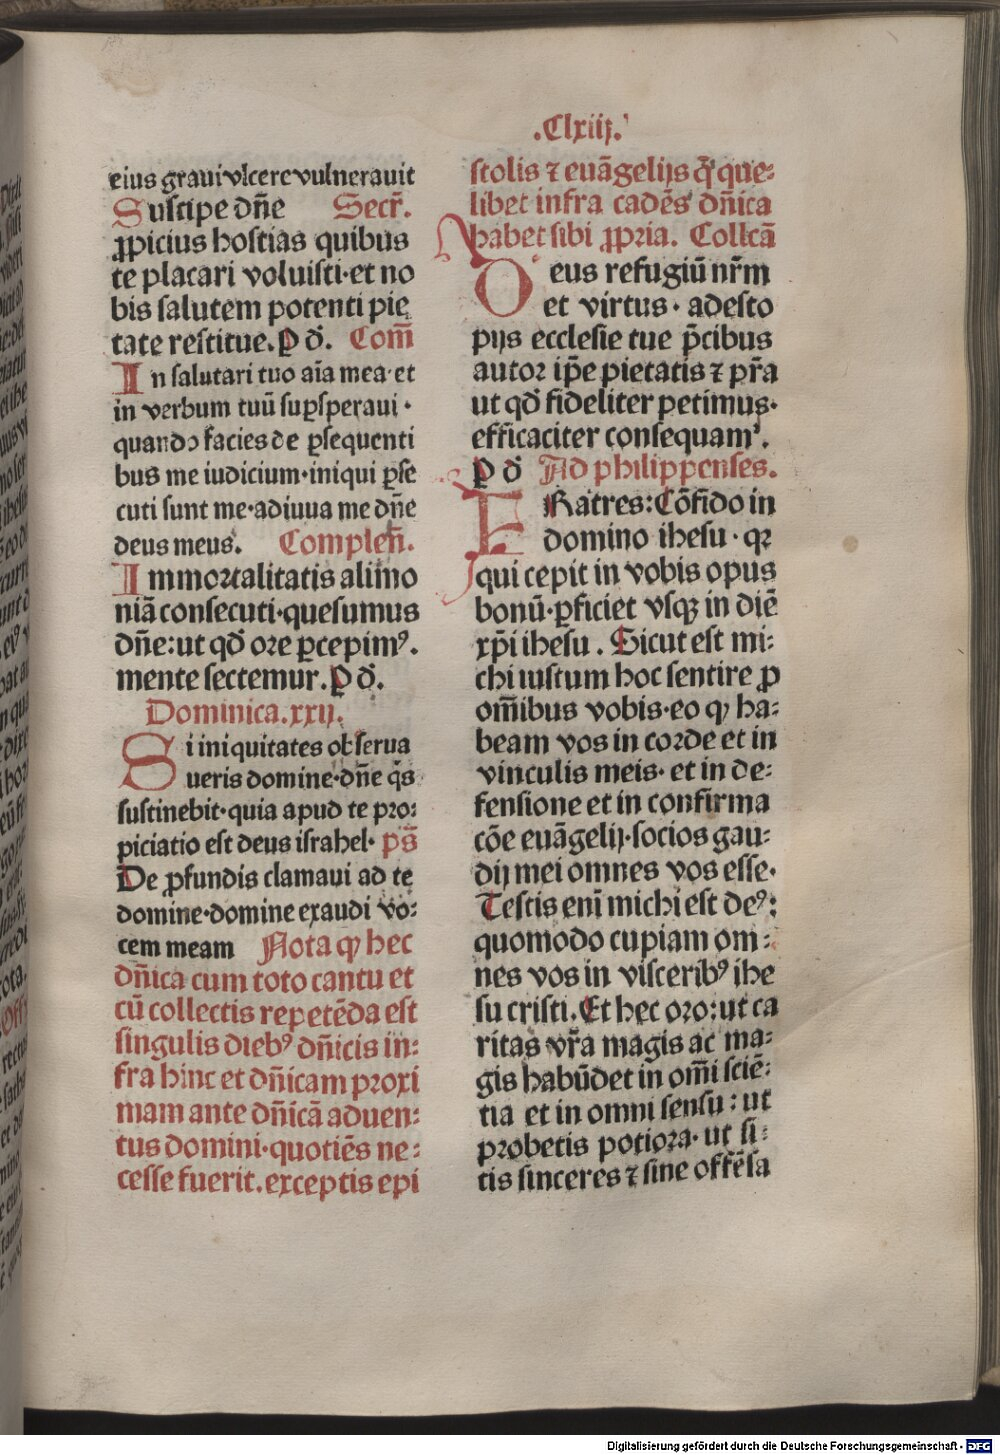 .Clxiij.
eius graui vlcere vulnerauit
Suscipe dn̄e Secr̄.
ꝓpicius hostias quibus
te placari voluisti·et no
bis salutem potenti pie
tate restitue. P d̄. Com̄
In salutari tuo aīa mea·et
in verbum tuū suꝑsperaui·
quando facies de ꝑsequenti
bus me iudicium·iniqui ꝑse
cuti sunt me·adiuua me dn̄e
deus meus. Complen̄.
Immortalitatis alimo
niā consecuti·quesumus
dn̄e:ut qd̄ ore ꝑcepimꝰ.
mente sectemur. P d̄.
Dominica.xxij.
Si iniquitates obserua
ueris domine·dn̄e q̄s
sustinebit·quia apud te pro:
piciatio est deus israhel· ps̄
De ꝓfundis clamaui ad te
domine·domine exaudi vo:
cem meam Nota ꝙ hec
dn̄ica cum toto cantu et
cū collectis repetēda est
singulis diebꝰ dn̄icis in:
fra hinc et dn̄icam proxi
mam ante dn̄icā aduen:
tus domini·quotiēs ne:
cesse fuerit.exceptis epi
stolis ⁊ euāgelijs q̄ que:
libet infra cadēs dn̄ica
habet sibi ꝓpria. Collcā
Deus refugiū nr̄m
et virtus·adesto
pijs ecclesie tue p̄cibus
autor ip̄e pietatis ⁊ pr̄a
ut qd̄ fideliter petimus·
efficaciter consequamꝰ.
P d̄ Ad philippenses.
FRatres:Cōfido in
domino ihesu·qꝛ
qui cepit in vobis opus
bonū·ꝑficiet vsqꝫ in diē
xp̄i ihesu. Sicut est mi:
chi iustum hoc sentire ꝓ
om̄ibus vobis·eo ꝙ ha:
beam vos in corde et in
vinculis meis·et in de:
fensione et in confirma
cōe euāgelij·socios gau:
dij mei omnes vos esse·
Testis eni̅ michi est deꝰ:
quomodo cupiam om:
nes vos in visceribꝰ ihe
su cristi. Et hec oro:ut ca
ritas vr̄a magis ac ma:
gis habūdet in om̄i sciē:
tia et in omni sensu:ut
probetis potiora·ut si:
tis sinceres ⁊ sine offēsa
Digitalisierung gefördert durch die Deutsche Forschungsgemeinschaft - DFG